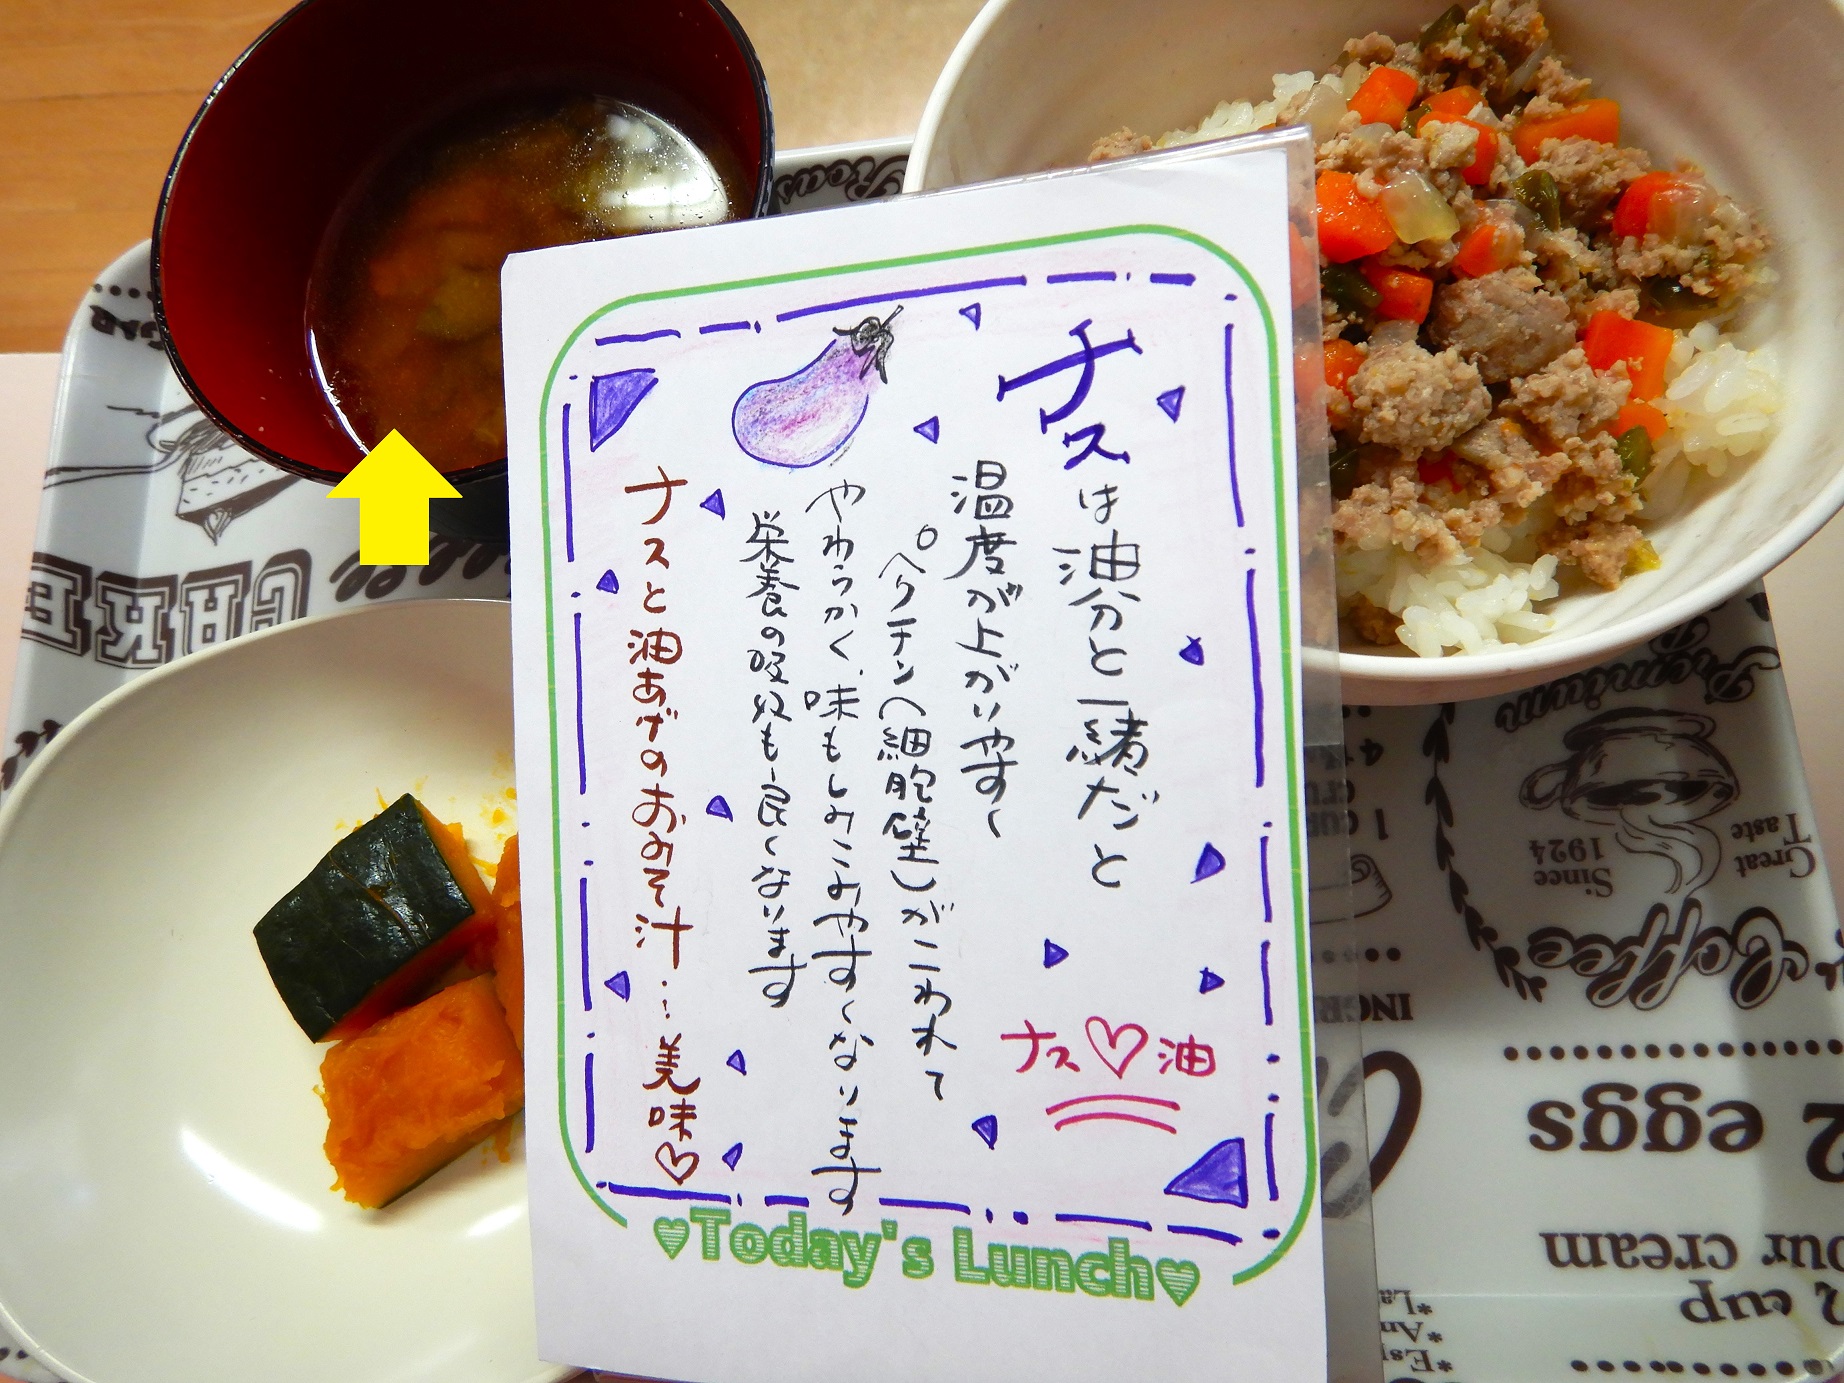 ナスは油分と一緒だと
温度が上がりやすく
ペクチン(細胞壁)がこわれて
やわらかく、味もしみこみやすくなります
栄養の吸収も良くなります
ナスと油あげのおみそ汁…美味♡
ナス♡油
♥Today's Lunch♥
CAKE
Premium
Great
Taste
Since
1924
Coffee
2 eggs
our cream
cup